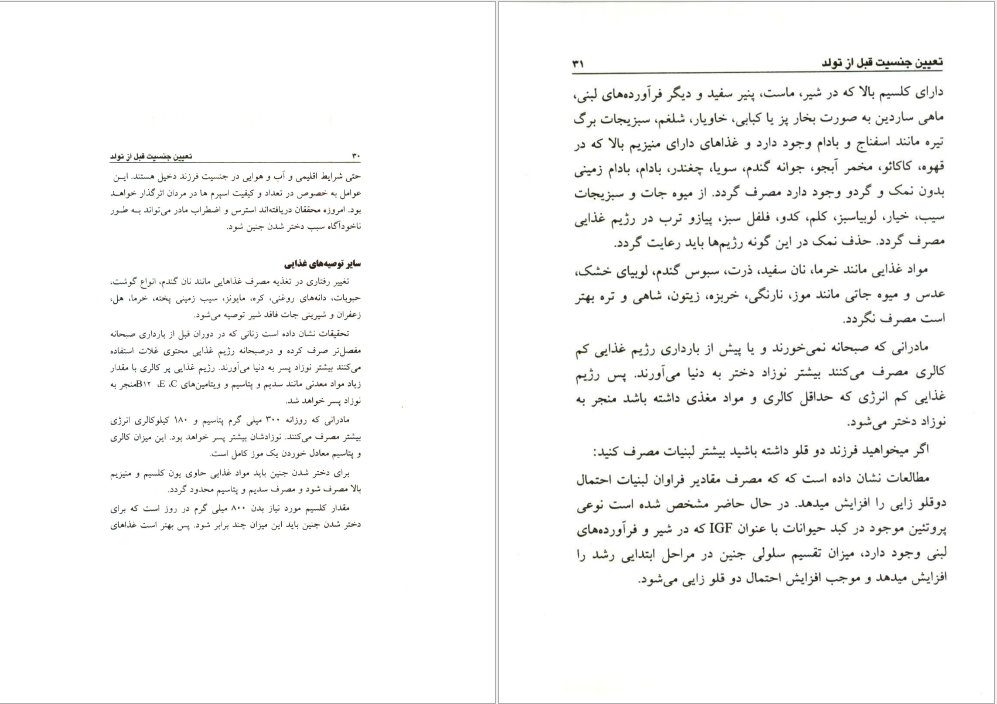 ۳۰ تعیین جنسیت قبل از تولد
حتی شرایط اقلیمی و آب و هوایی در جنسیت فرزند دخیل هستند. ایـن
عوامل به خصوص در تعداد و کیفیت اسپرم ها در مردان اثرگذار خواهـد
بود. امروزه محققان دریافته‌اند استرس و اضطراب مادر می‌تواند بـه طـور
ناخودآگاه سبب دختر شدن جنین شود.
سایر توصیه‌های غذایی
تغییر رفتاری در تغذیه مصرف غذاهایی مانند نان گندم، انواع گوشت،
حبوبات، دانه‌های روغنی، کره، مایونز، سیب زمینی پخته، خرما، هل،
زعفران و شیرینی جات فاقد شیر توصیه می‌شود.
تحقیقات نشان داده است زنانی که در دوران قبل از بارداری صبحانه
مفصل‌تر صرف کرده و درصبحانه رژیم غذایی محتوی غلات استفاده
می‌کنند بیشتر نوزاد پسر به دنیا می‌آورند. رژیم غذایی پر کالری با مقدار
زیاد مواد معدنی مانند سدیم و پتاسیم و ویتامین‌های E ،C، B۱۲منجر به
نوزاد پسر خواهد شد.
مادرانی که روزانه ۳۰۰ میلی گرم پتاسیم و ۱۸۰ کیلوکالری انرژی
بیشتر مصرف می‌کنند. نوزادشان بیشتر پسر خواهد بود. این میزان کالری
و پتاسیم معادل خوردن یک موز کامل است.
برای دختر شدن جنین باید مواد غذایی حاوی یون کلسیم و منیزیم
بالا مصرف شود و مصرف سدیم و پتاسیم محدود گردد.
مقدار کلسیم مورد نیاز بدن ۸۰۰ میلی گرم در روز است که برای
دختر شدن جنین باید این میزان چند برابر شود. پس بهتر است غذاهای
تعیین جنسیت قبل از تولد ۳۱
دارای کلسیم بالا که در شیر، ماست، پنیر سفید و دیگر فرآورده‌های لبنی،
ماهی ساردین به صورت بخار پز یا کبابی، خاویار، شلغم، سبزیجات برگ
تیره مانند اسفناج و بادام وجود دارد و غذاهای دارای منیزیم بالا که در
قهوه، کاکائو، مخمر آبجو، جوانه گندم، سویا، چغندر، بادام، بادام زمینی
بدون نمک و گردو وجود دارد مصرف گردد. از میوه جات و سبزیجات
سیب، خیار، لوبیاسبز، کلم، کدو، فلفل سبز، پیازو ترب در رژیم غذایی
مصرف گردد. حذف نمک در این گونه رژیم‌ها باید رعایت گردد.
مواد غذایی مانند خرما، نان سفید، ذرت، سبوس گندم، لوبیای خشک،
عدس و میوه جاتی مانند موز، نارنگی، خربزه، زیتون، شاهی و تره بهتر
است مصرف نگردد.
مادرانی که صبحانه نمی‌خورند و یا پیش از بارداری رژیم غذایی کم
کالری مصرف می‌کنند بیشتر نوزاد دختر به دنیا می‌آورند. پس رژیم
غذایی کم انرژی که حداقل کالری و مواد مغذی داشته باشد منجر به
نوزاد دختر می‌شود.
اگر میخواهید فرزند دو قلو داشته باشید بیشتر لبنیات مصرف کنید:
مطالعات نشان داده است که که مصرف مقادیر فراوان لبنیات احتمال
دوقلو زایی را افزایش میدهد. در حال حاضر مشخص شده است نوعی
پروتئین موجود در کبد حیوانات با عنوان IGF که در شیر و فرآورده‌های
لبنی وجود دارد، میزان تقسیم سلولی جنین در مراحل ابتدایی رشد را
افزایش میدهد و موجب افزایش احتمال دو قلو زایی می‌شود.